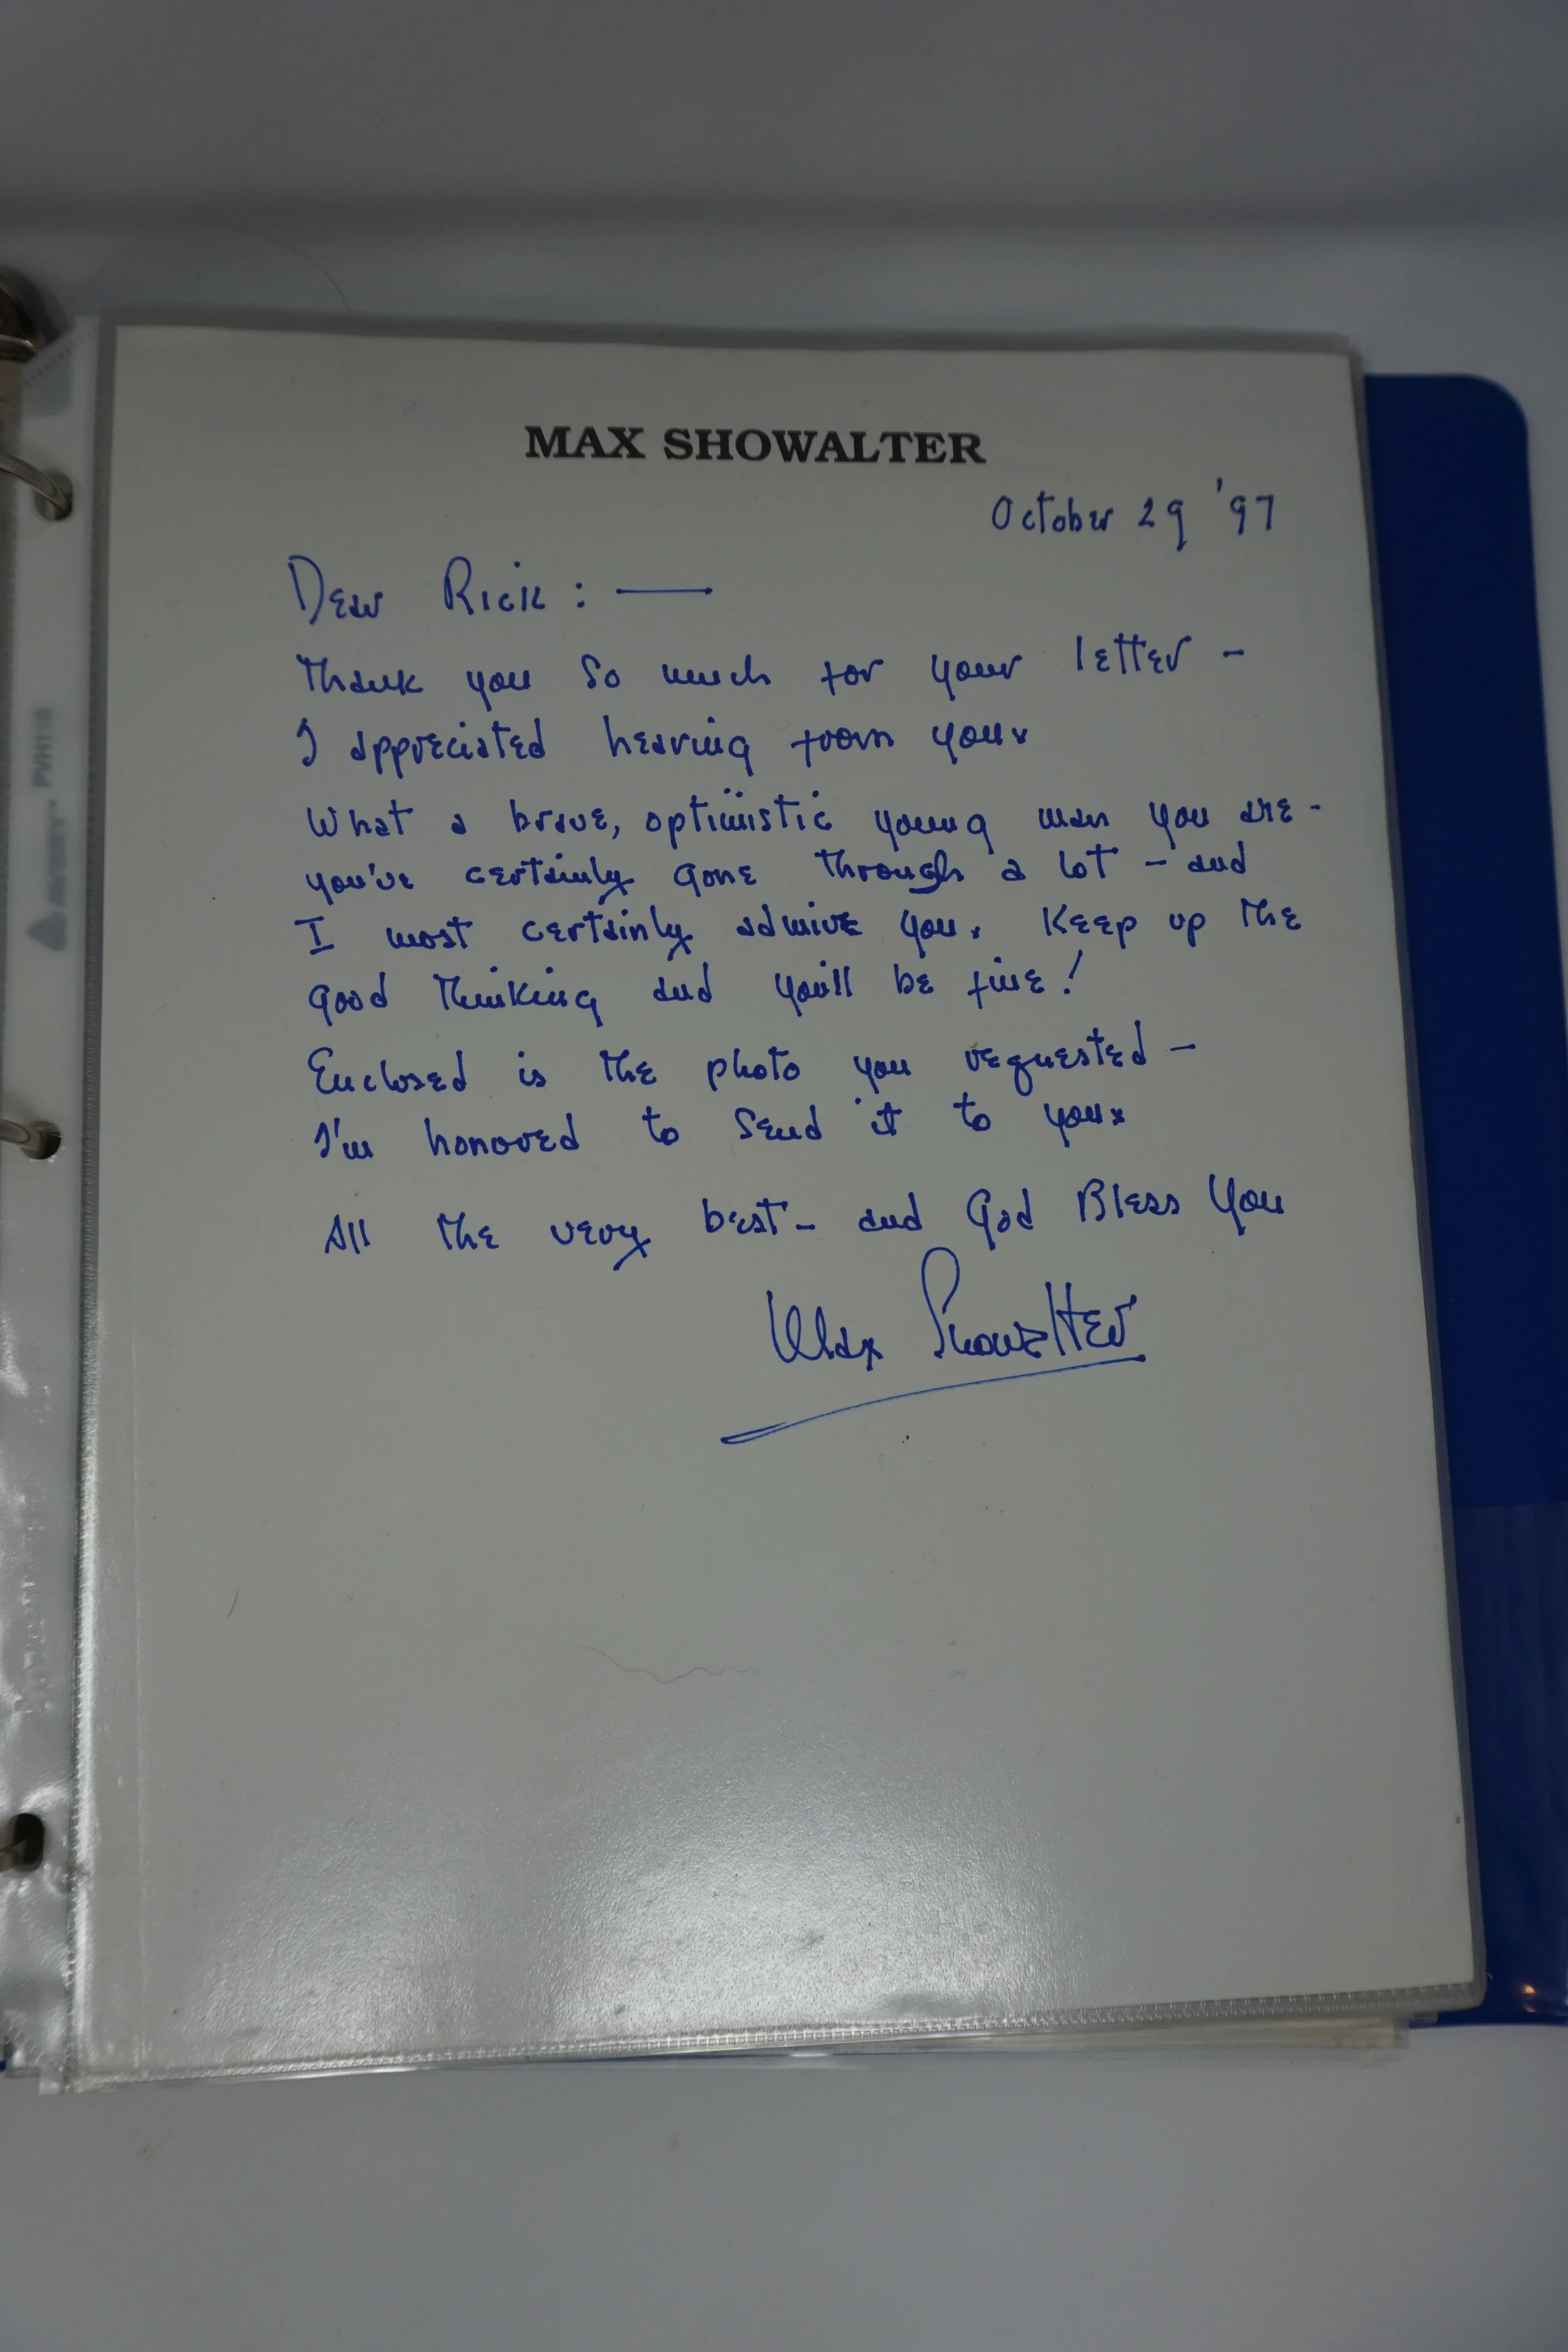 MAX SHOWALTER
October 29 '97
Dear Rick : —
Thank you so much for your letter -
I appreciated hearing from you.
What a brave, optimistic young man you are -
you've certainly gone through a lot - and
I most certainly admire you. Keep up the
good thinking and you'll be fine!
Enclosed is the photo you requested -
I'm honored to send it to you.
All the very best - and God Bless You
Max Showalter
AVERY PVH119